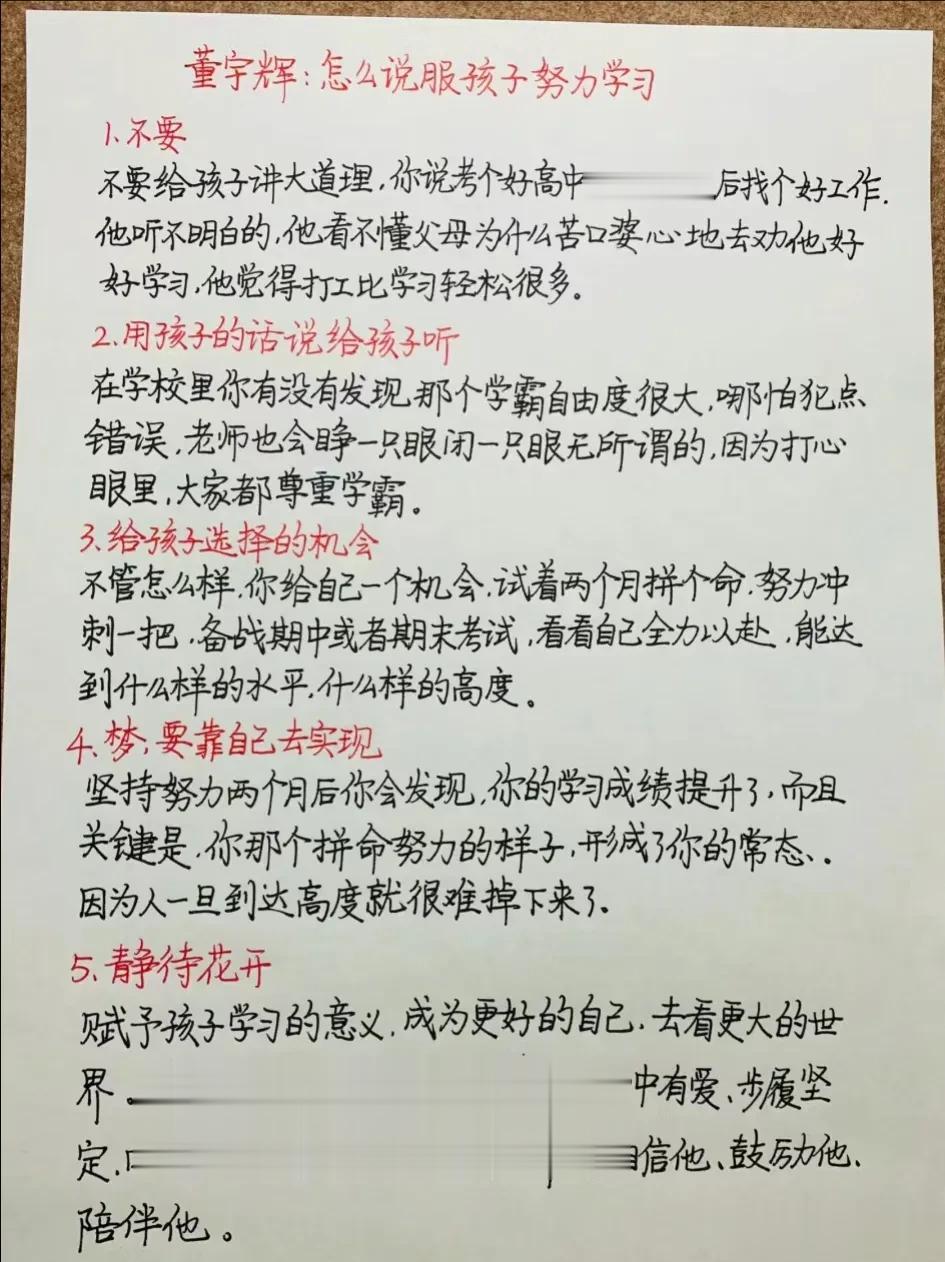 董宇辉:怎么说服孩子努力学习
1.不要
不要给孩子讲大道理,你说考个好高中后找个好工作.
他听不明白的,他看不懂父母为什么苦口婆心地去劝他好
好学习,他觉得打工比学习轻松很多。
2.用孩子的话说给孩子听
在学校里你有没有发现,那个学霸自由度很大,哪怕犯点
错误,老师也会睁一只眼闭一只眼无所谓的,因为打心
眼里,大家都尊重学霸。
3.给孩子选择的机会
不管怎么样,你给自己一个机会,试着两个月拼个命,努力冲
刺一把,备战期中或者期末考试,看看自己全力以赴,能达
到什么样的水平,什么样的高度。
4.梦,要靠自己去实现
坚持努力两个月后你会发现,你的学习成绩提升了,而且
关键是,你那个拼命努力的样子,形成了你的常态、。
因为人一旦到达高度就很难掉下来了.
5.静待花开
赋予孩子学习的意义,成为更好的自己,去看更大的世
界。中有爱、步履坚
定,信他、鼓励他、
陪伴他。